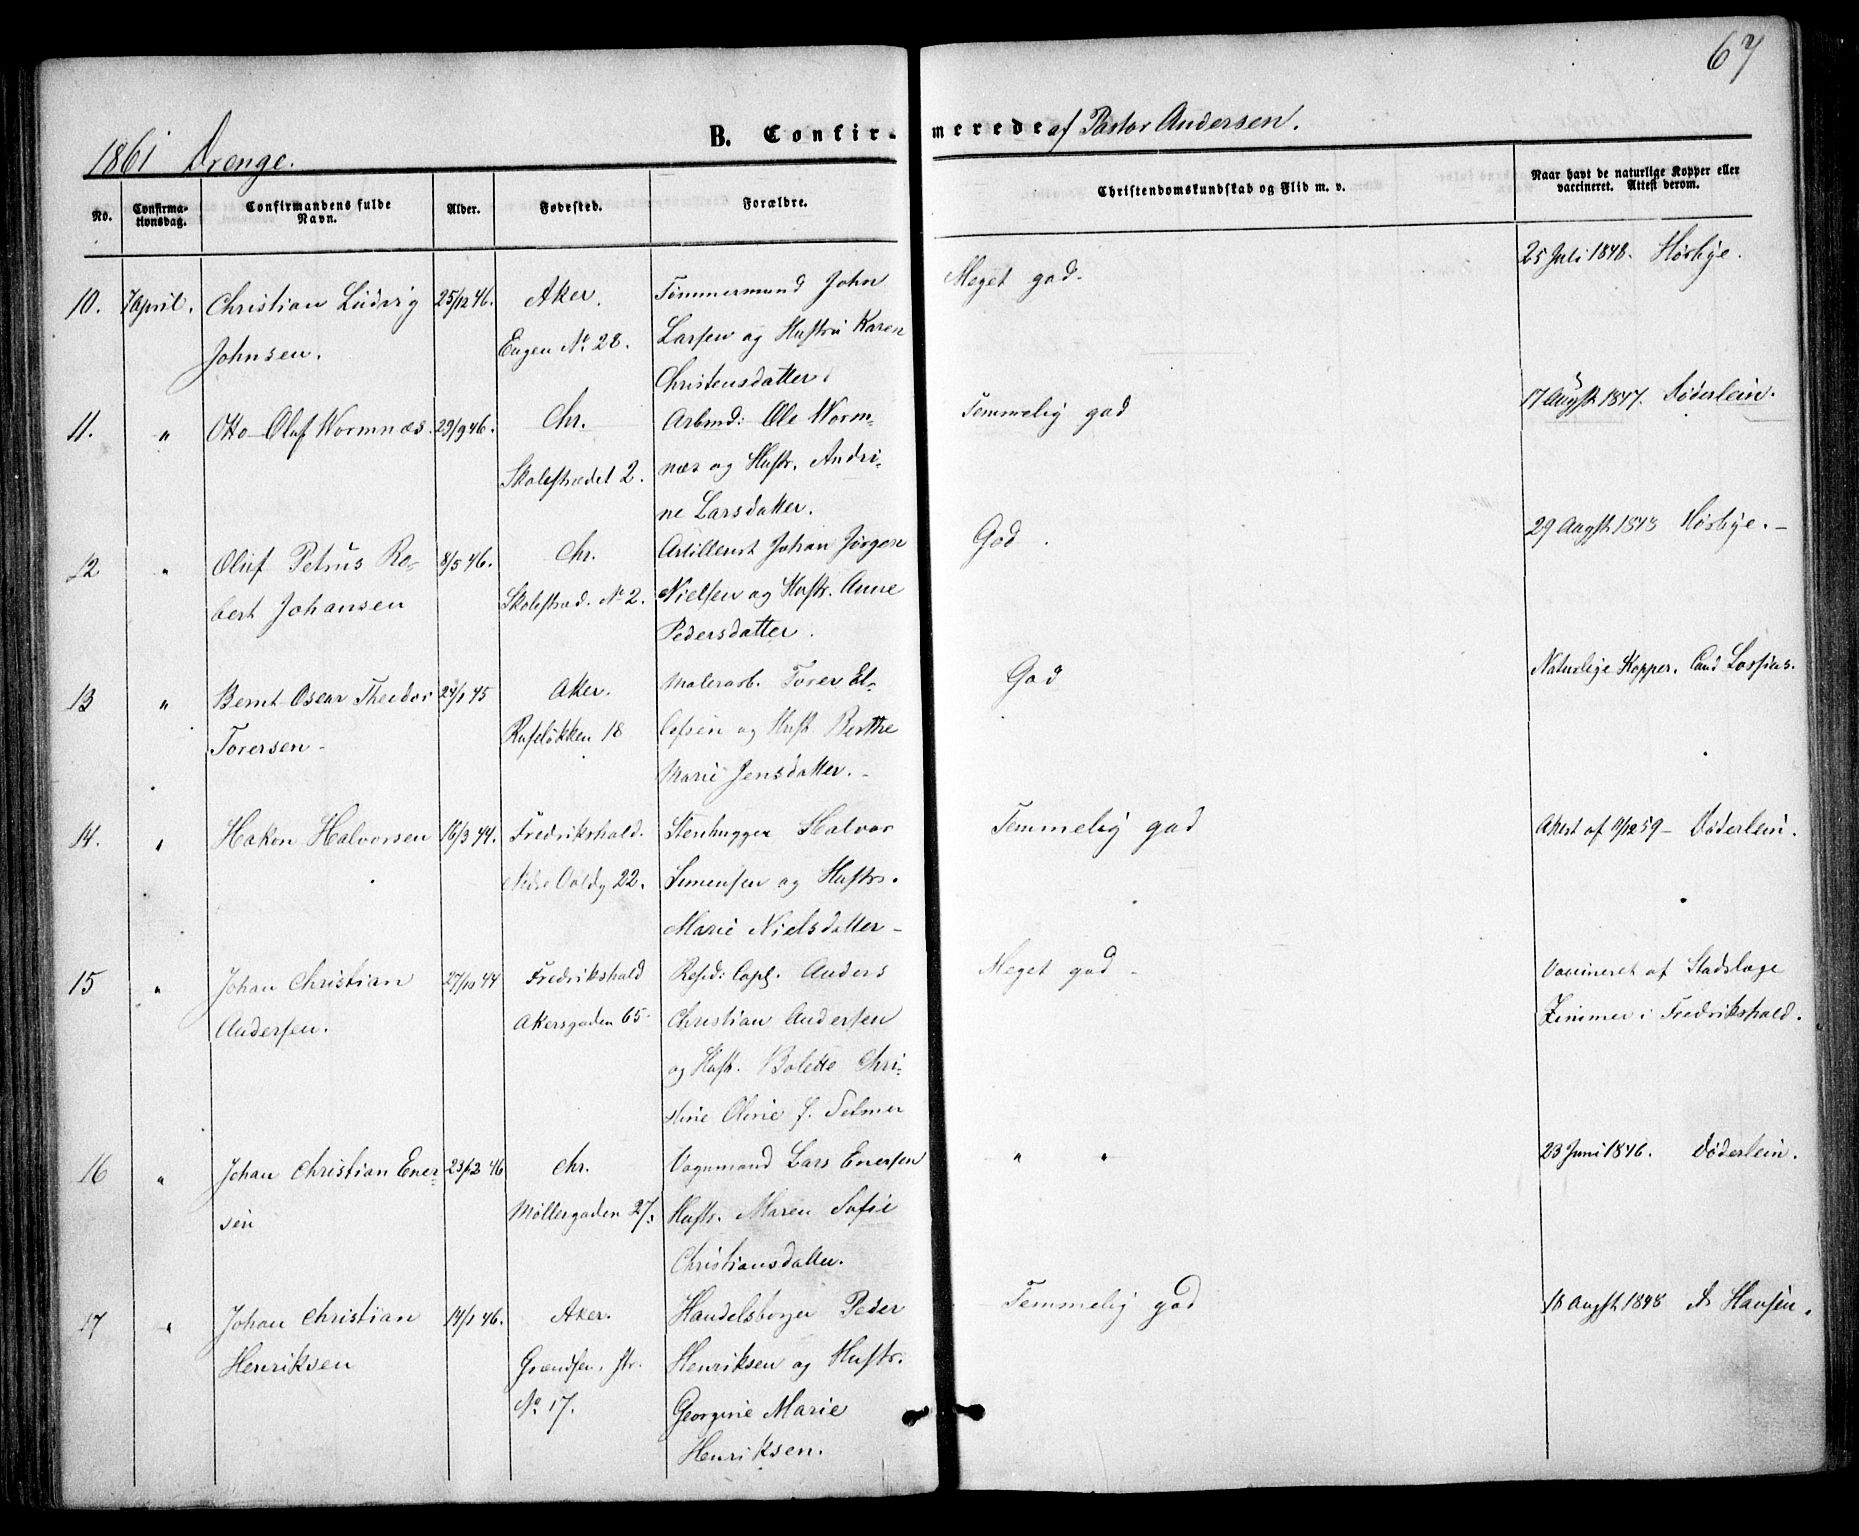 67
B. Confir- merede af Pastor Andersen.
1861 Drenge.
No.
Confirma-
tionsdag.
Confirmandens fulde
Navn.
Alder.
Fødested.
Forældre.
Christendomskundskab og Flid m. v.
Naar havt de naturlige Kopper eller
vaccineret. Attest derom.
10. 7 April. Christian Ludvig 25/12 46. Aker. Tømmermand John Meget god. 25 Juli 1848. Hørbye.
Johnsen. Engen No 28. Larsen og Hustru Karen
Christensdatter.
11. " Otto Oluf Wormnæs. 29/9 46. Chr. Arbmd: Ole Worm- Temmelig god 17 Augst 1847. Døderlein.
Skolestrædet 2. næs og Hustr. Andri-
ne Larsdatter.
12 " Oluf Petrus Ro- 8/5 46. Chr. Artillerist Johan Jørgen God. 29 Augst Hørbye. -
bert Johansen Skolestræd. No 2. Nielsen og Hustr. Anne
Pedersdatter.
13 " Bernt Oscar Theodor 24/1 45 Aker. Malerarb. Torer God Naturlige Kopper. Cand
Torersen - Ruseløkken 18 og Hust Berthe
Marie Jensdatter. -
14. " Hakon Halvorsen 16/3 44. Fredrikshald. Stenhugger Halvor Temmelig god Attest af 9/12 59 - Døderlein.
Nedre Voldg 22. Simensen og Hustr.
Marie Nielsdatter -
15 " Johan Christian 27/10 44 Fredrikshald Resid: Capl. Anders Meget god - Vaccineret af Stadslæge
Andersen. Akersgaden 65. Christian Andersen Zimmer i Fredrikshald.
og Hust. Bolette Chri-
stine Oline f. Selmer
16 " Johan Christian Ener- 23/2 46 Chr. Vognmand Lars Enersen " " 23 Juni 1846. Døderlein.
sen Møllergaden 27. Hustr. Maren Sofie
Christiansdatter.
17 " Johan Christian 14/1 46. Aker. Handelsborger Peder Temmelig god 18 Augst 1848 Hansen.
Henriksen Grændsen, str. Henriksen og Hustr.
No 17. Georgine Marie
Henriksen.